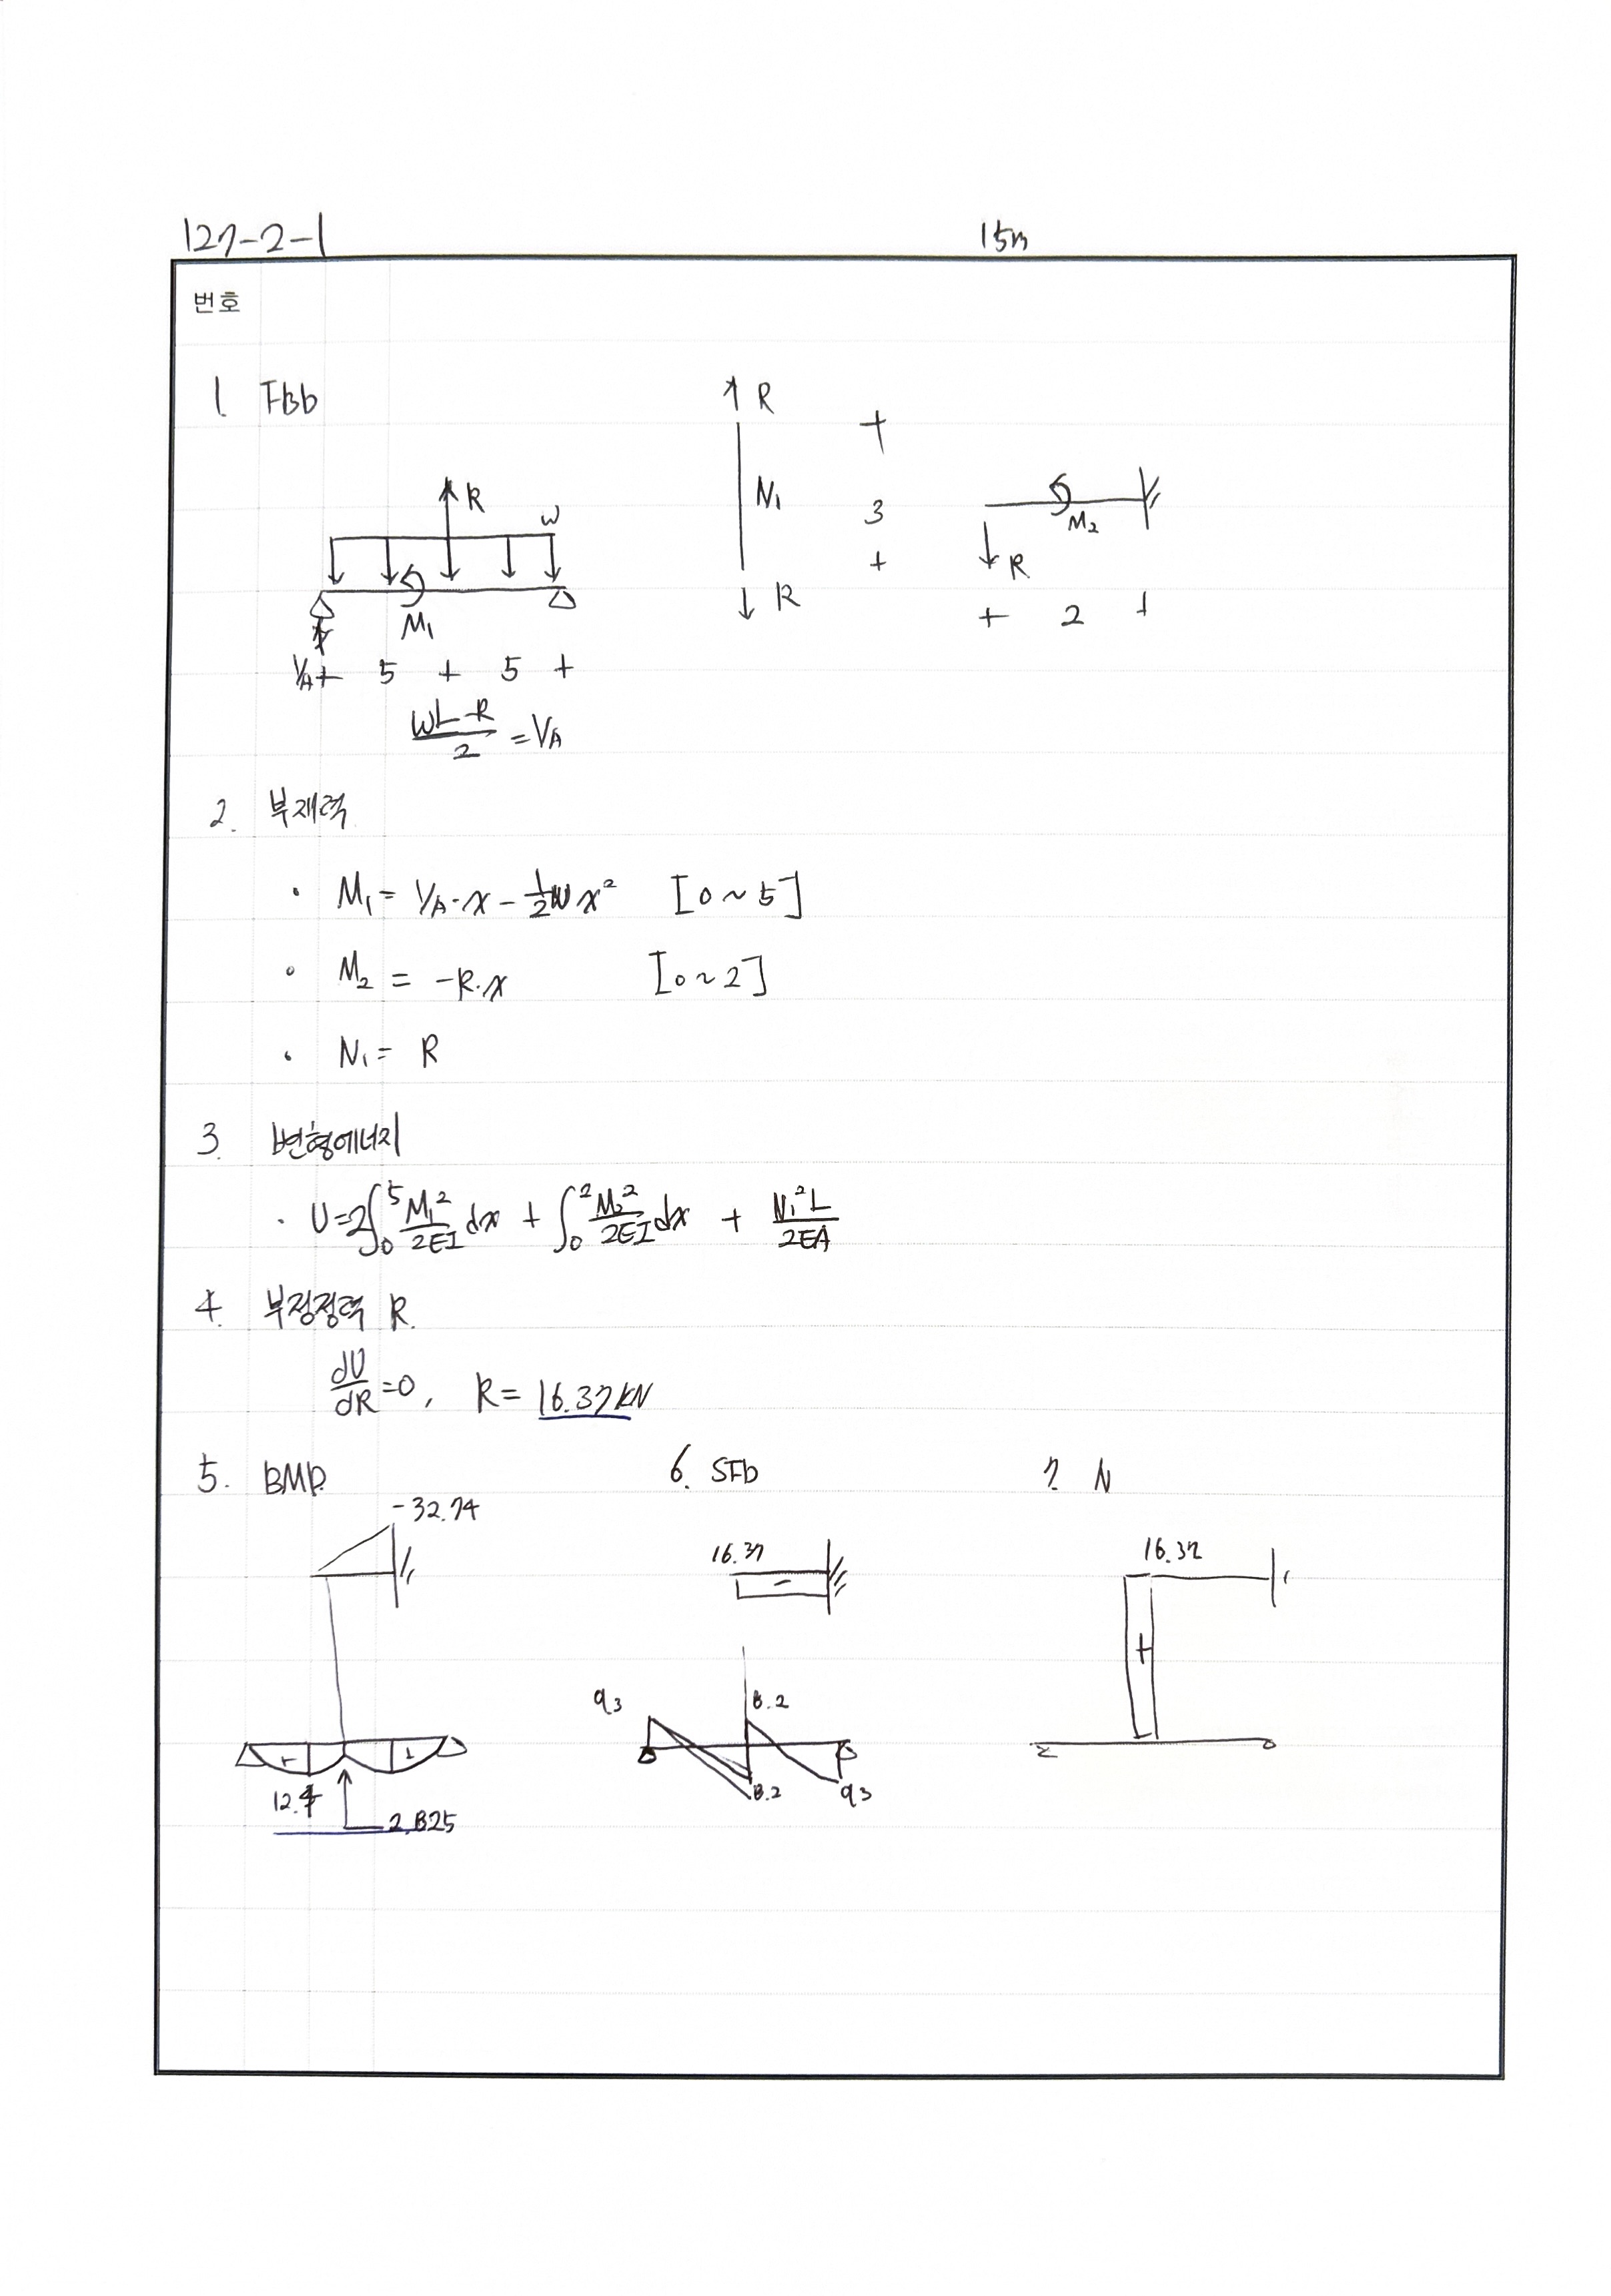 127-2-1 15m
번호
1. FBD
R
W
M₁
V_A + 5 + 5 +
(WL-R)/2 = V_A
R
N₁
R
+
3
+
M₂
R
+ 2 +
2. 부재력
· M₁ = V_A·x - 1/2 W x² [0~5]
· M₂ = -R·x [0~2]
· N₁ = R
3. 변형에너지
· U = 2∫₀⁵ M₁²/2EI dx + ∫₀² M₂²/2EI dx + N₁²L/2EA
4. 부정정력 R.
dU/dR = 0, R = 16.37kN
5. BMD. 6. SFD 7. N
-32.74
+ +
12.4
2.825
16.37
-
9.3 8.2
8.2 9.3
16.37
+